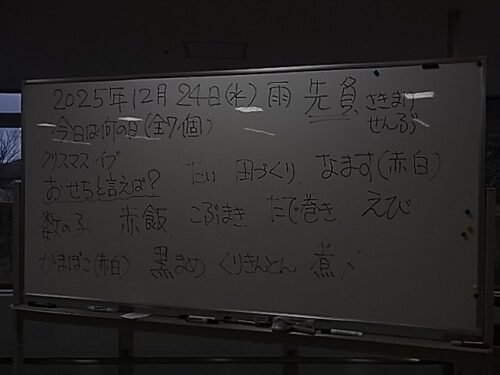 2025年12月24日(水) 雨 先負 さきまけ
せんぶ
今日は何の日(全7個)
クリスマス・イブ
おせちと言えば? たい 田づくり なます(赤白)
数の子 赤飯 こぶまき だて巻き えび
かまぼこ(赤白) 黒まめ くりきんとん 煮〆